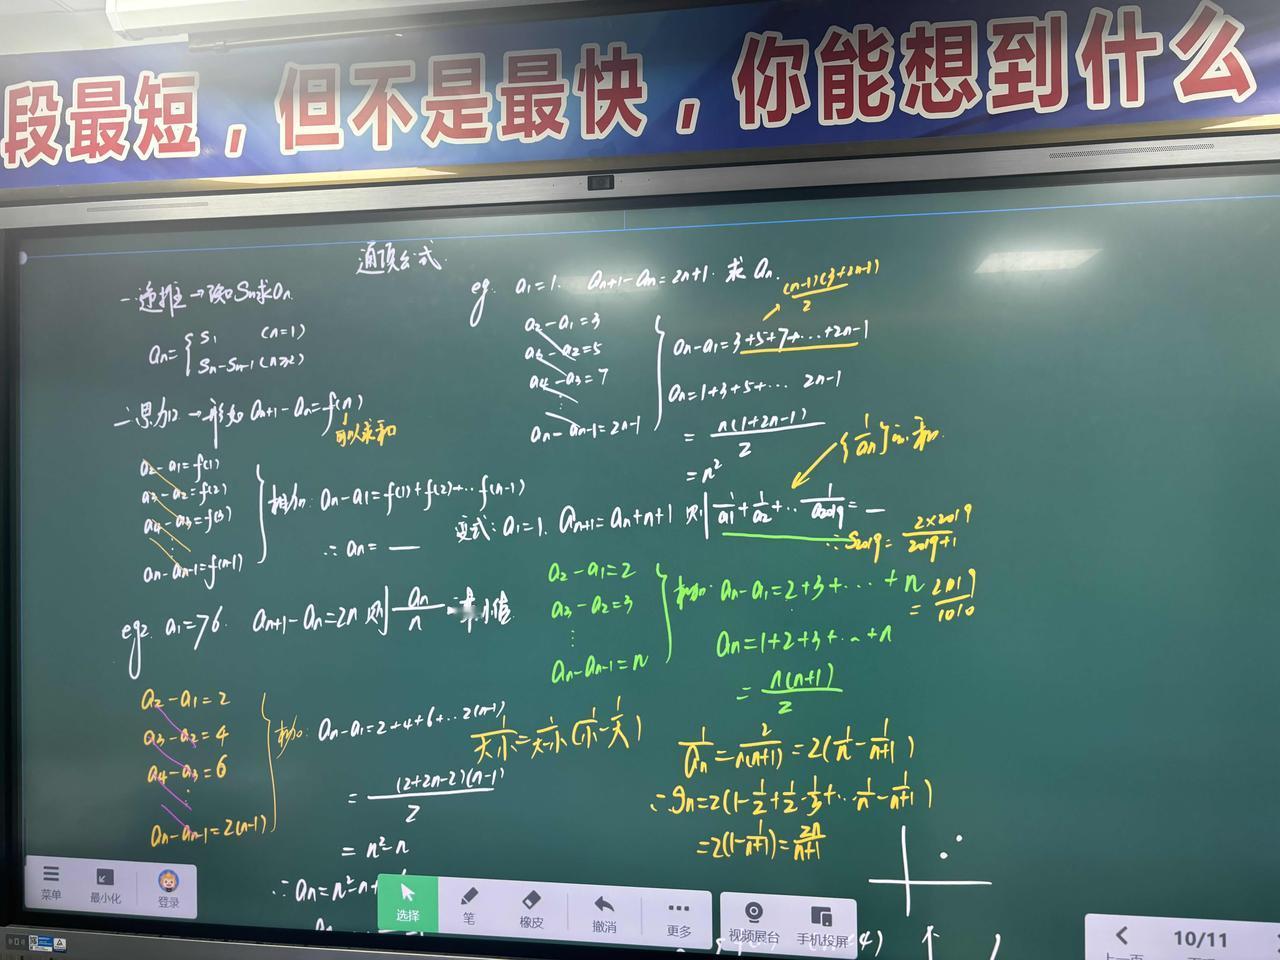 段最短，但不是最快，你能想到什么
通项公式
一递推→已知Sn求an
an={S1 (n=1)
Sn-Sn-1 (n≥2)
二累加→形如 an+1-an=f(n)
可以求和
a2-a1=f(1)
a3-a2=f(2)
a4-a3=f(3)
⋮
an-an-1=f(n-1)
相加: an-a1=f(1)+f(2)+…f(n-1)
∴an=—
eg a1=1. an+1-an=2n+1. 求an
a2-a1=3
a3-a2=5
a4-a3=7
⋮
an-an-1=2n-1
(n-1)(3+2n-1)/2
an-a1=3+5+7+…+2n-1
an=1+3+5+… 2n-1
=n(1+2n-1)/2
=n²
{1/an}求和
变式:a1=1. an+1=an+n+1 则 1/a1+1/a2+…1/a2019=—
∴S2019=2×2019/2019+1
=2019/1010
a2-a1=2
a3-a2=3
⋮
an-an-1=n
相加: an-a1=2+3+…+n
an=1+2+3+…+n
=n(n+1)/2
1/大小=1/大-小(1/小-1/大)
1/an=2/n(n+1)=2(1/n-1/n+1)
∴Sn=2(1-1/2+1/2-1/3+…1/n-1/n+1)
=2(1-1/n+1)=2n/n+1
eg2. a1=76. an+1-an=2n 则 an/n 最小值
a2-a1=2
a3-a2=4
a4-a3=6
⋮
an-an-1=2(n-1)
相加: an-a1=2+4+6+…2(n-1)
=(2+2n-2)(n-1)/2
=n²-n
∴an=n²-n+
菜单
最小化
登录
选择
笔
橡皮
撤消
更多
视频展台
手机投屏
10/11
上一页